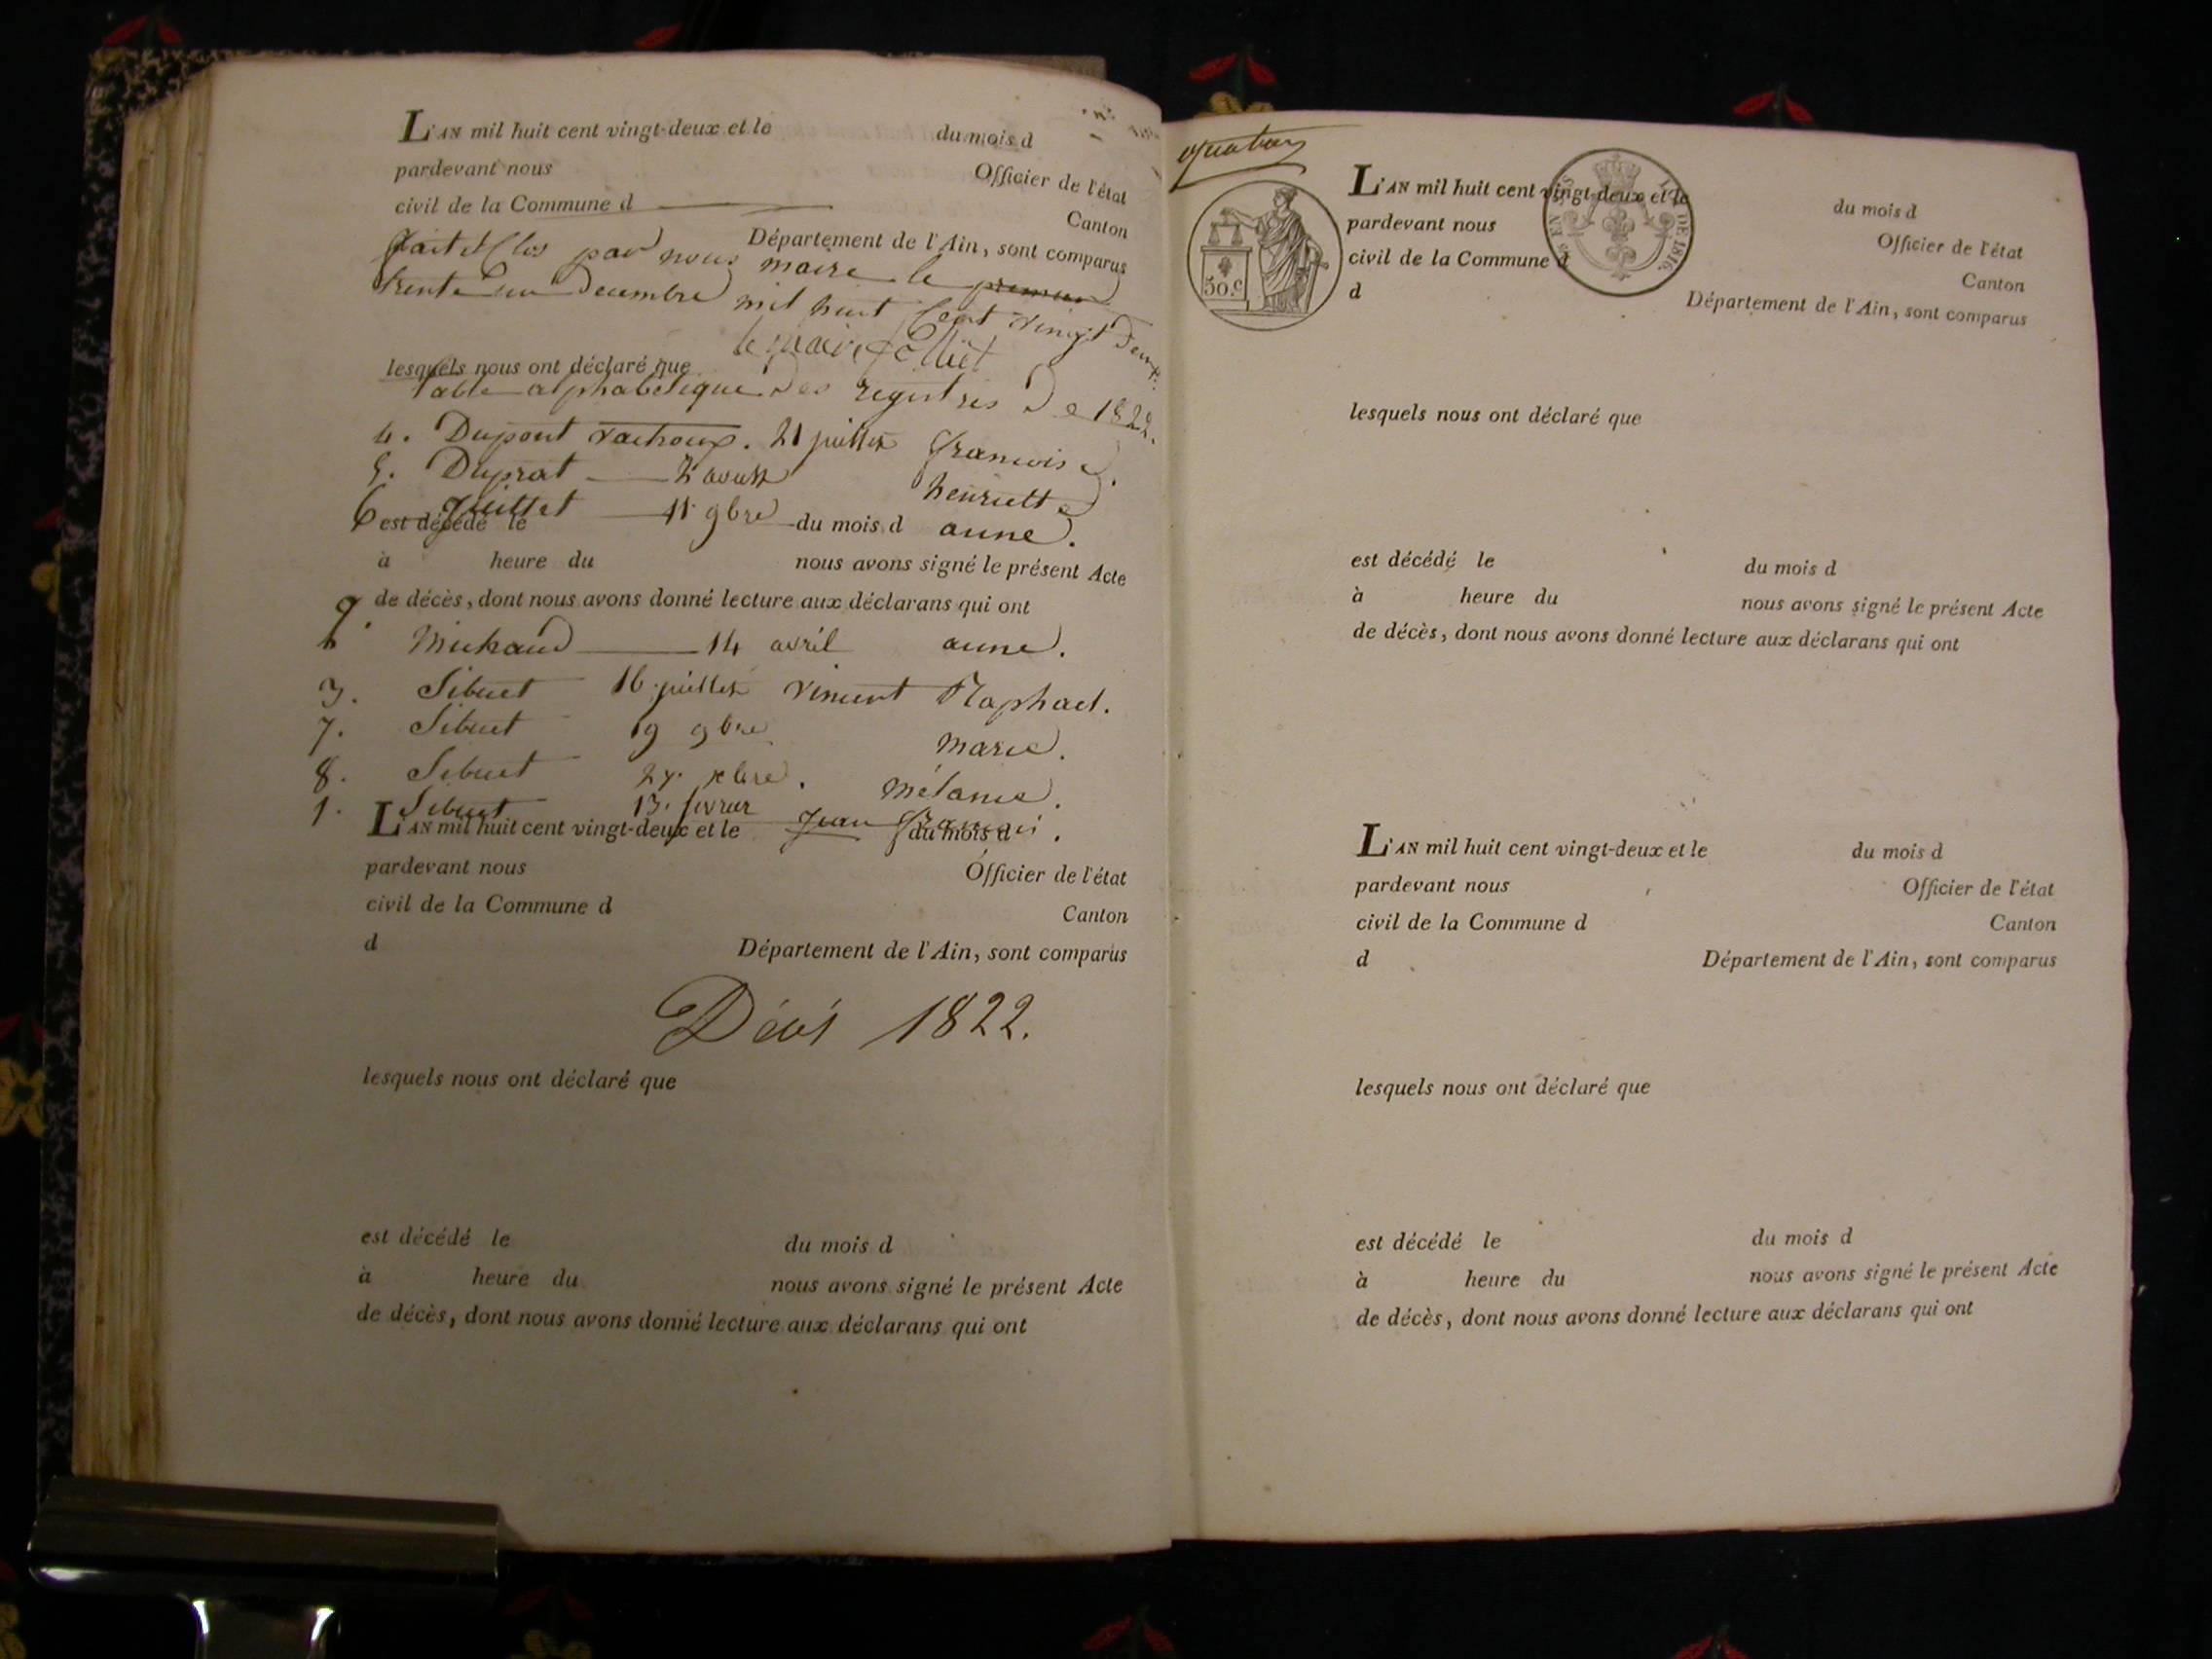 L'AN mil huit cent vingt-deux et le du mois d
pardevant nous Officier de l'état
civil de la Commune d Canton
Département de l'Ain, sont comparus
fait et Clos par nous maire le premier
trente un Decembre mil huit Cent vingt deux
le maire
lesquels nous ont déclaré que
Table alphabetique des registres de 1822.
4. Dupont 21 juillet francoise.
5. Duprat 2 aoust henriette
6 Juillet 11 9bre anne.
est décédé le du mois d
à heure du nous avons signé le présent Acte
de décès, dont nous avons donné lecture aux déclarans qui ont
2. Michaud 14 avril anne.
3. Sibuet 16 juillet vincent Raphael.
7. Sibuet 19 9bre marie.
8. Sibuet 27. xbre. mélanie.
1. Sibuet 13. fevrier Jean francois.
L'AN mil huit cent vingt-deux et le du mois d
pardevant nous Officier de l'état
civil de la Commune d Canton
d Département de l'Ain, sont comparus
Décès 1822.
lesquels nous ont déclaré que
est décédé le du mois d
à heure du nous avons signé le présent Acte
de décès, dont nous avons donné lecture aux déclarans qui ont
50.c
DE 1816.
L'AN mil huit cent vingt-deux et le du mois d
pardevant nous Officier de l'état
civil de la Commune d Canton
d Département de l'Ain, sont comparus
lesquels nous ont déclaré que
est décédé le du mois d
à heure du nous avons signé le présent Acte
de décès, dont nous avons donné lecture aux déclarans qui ont
L'AN mil huit cent vingt-deux et le du mois d
pardevant nous Officier de l'état
civil de la Commune d Canton
d Département de l'Ain, sont comparus
lesquels nous ont déclaré que
est décédé le du mois d
à heure du nous avons signé le présent Acte
de décès, dont nous avons donné lecture aux déclarans qui ont